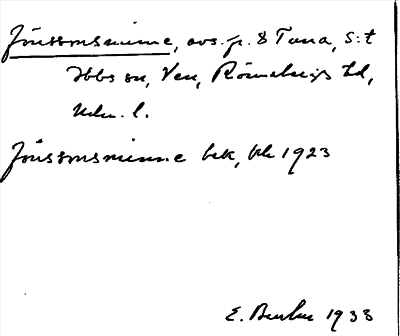 Jönssonsminne, avs. p. 8 Tuna, S:t
Ibbs sn, Ven, Rönnebergs hd,
Mlm. l.
Jönssonsminne bek, bl 1923
E. 1933